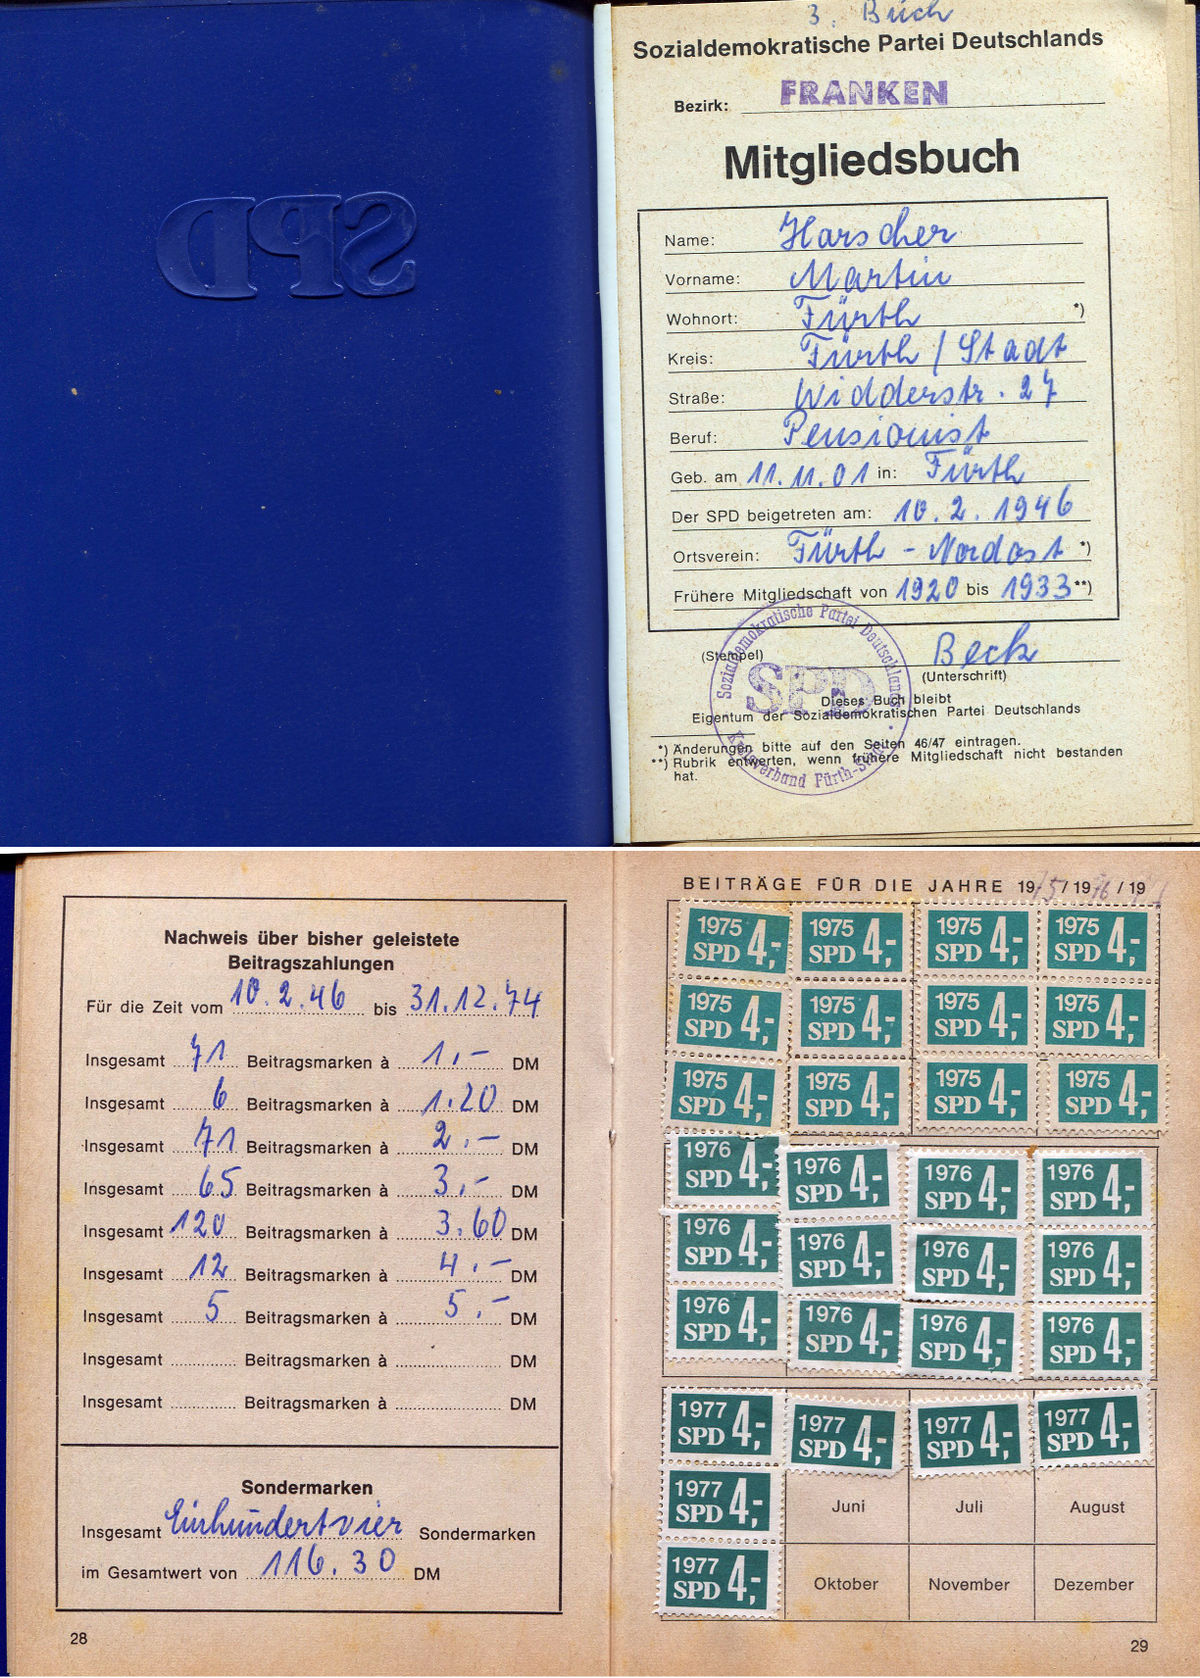 SPD
3. Buch
Sozialdemokratische Partei Deutschlands
Bezirk: FRANKEN
Mitgliedsbuch
Name: Harscher
Vorname: Martin
Wohnort: Fürth *)
Kreis: Fürth / Stadt
Straße: Widderstr. 27
Beruf: Pensionist
Geb. am 11.11.01 in: Fürth
Der SPD beigetreten am: 10.2.1946
Ortsverein: Fürth - Nordost *)
Frühere Mitgliedschaft von 1920 bis 1933 **)
Sozialdemokratische Partei Deutschlands
SPD
Kreisverband Fürth-Stadt
Beck
(Stempel)
(Unterschrift)
Dieses Buch bleibt
Eigentum der Sozialdemokratischen Partei Deutschlands
*) Änderungen bitte auf den Seiten 46/47 eintragen.
**) Rubrik entwerten, wenn frühere Mitgliedschaft nicht bestanden
hat.
Nachweis über bisher geleistete
Beitragszahlungen
Für die Zeit vom 10.2.46 bis 31.12.74
Insgesamt 71 Beitragsmarken à 1.- DM
Insgesamt 6 Beitragsmarken à 1.20 DM
Insgesamt 71 Beitragsmarken à 2.- DM
Insgesamt 65 Beitragsmarken à 3.- DM
Insgesamt 120 Beitragsmarken à 3.60 DM
Insgesamt 12 Beitragsmarken à 4.- DM
Insgesamt 5 Beitragsmarken à 5.- DM
Insgesamt Beitragsmarken à DM
Insgesamt Beitragsmarken à DM
Sondermarken
Insgesamt Einhundertvier Sondermarken
im Gesamtwert von 116.30 DM
28
BEITRÄGE FÜR DIE JAHRE 1975/1976/19
1975 SPD 4,- 1975 SPD 4,- 1975 SPD 4,- 1975 SPD 4,-
1975 SPD 4,- 1975 SPD 4,- 1975 SPD 4,- 1975 SPD 4,-
1975 SPD 4,- 1975 SPD 4,- 1975 SPD 4,- 1975 SPD 4,-
1976 SPD 4,- 1976 SPD 4,- 1976 SPD 4,- 1976 SPD 4,-
1976 SPD 4,- 1976 SPD 4,- 1976 SPD 4,- 1976 SPD 4,-
1976 SPD 4,- 1976 SPD 4,- 1976 SPD 4,- 1976 SPD 4,-
1977 SPD 4,- 1977 SPD 4,- 1977 SPD 4,- 1977 SPD 4,-
1977 SPD 4,- Juni Juli August
1977 SPD 4,- Oktober November Dezember
29